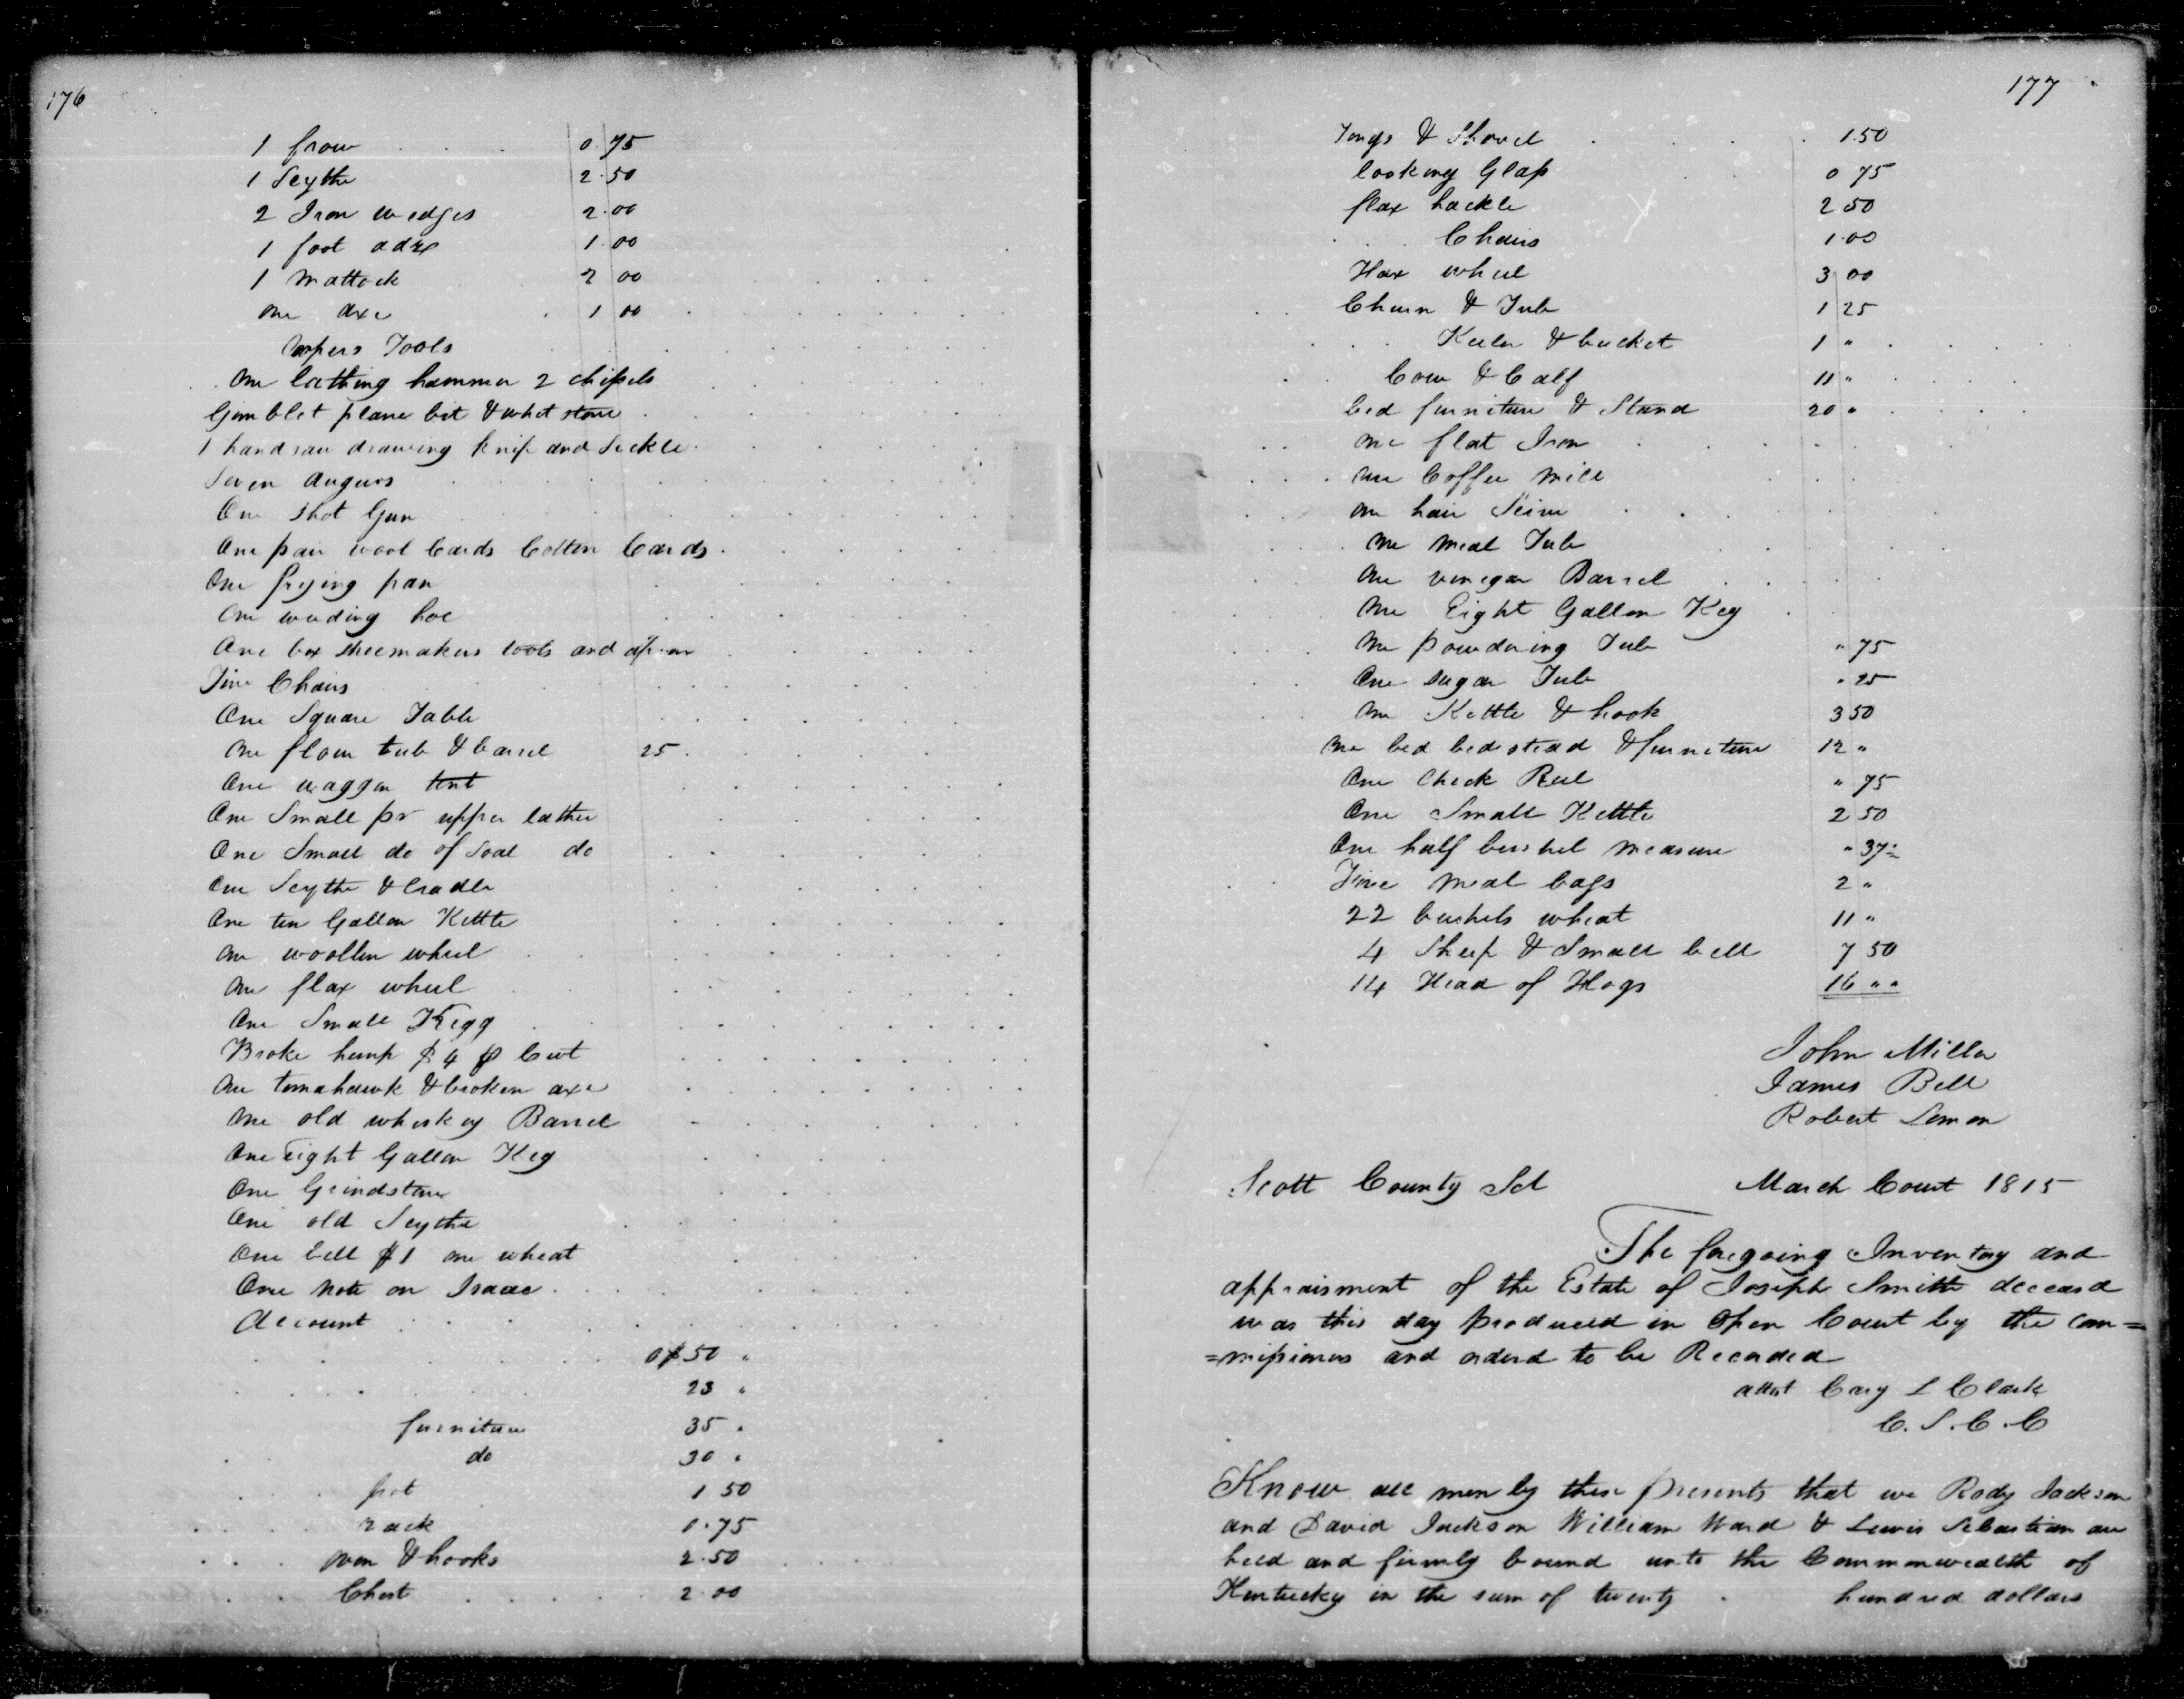 176
1 frow . . . 0.75
1 Scythe 2.50
2 Iron wedges 2.00
1 foot adze 1.00
1 Mattock 2 00
one axe . 1 00
Coopers Tools
One lathing hammer 2 chissels
Gimblet plane bit & whet stone
1 handsaw drawing knife and Sickle
Seven Augurs
One Shot Gun
One pair wool Cards Cotton Cards
One frying pan
One weeding hoe
One box shoemakers tools and apron
Five Chairs
One Square Table
One flour tub & barrel 25
One waggon tent
One Small pr upper leather
One Small do of Soal do
One Scythe & Cradle
One ten Gallon Kettle
One woollen wheel
One flax wheel
One Small Kegg
Broke hemp $4 p Cwt
One tomahawk & broken axe
One old whiskey Barrel
One Eight Gallon Keg
One Grindstone
One old Scythe
One bell $1 one wheat
One note on Isaac
Account
$50 "
23 "
furniture 35 "
do 30 "
pot 1 50
rack 0.75
oven & hooks 2.50
Chest 2.00
177
Tongs & Shovel 1.50
looking Glass 0 75
flax hackle 2 50
Chairs 1.00
flax wheel 3 00
Churn & Tub 1 25
Keeler & bucket 1 "
Cow & Calf 11 "
bed furniture & Stand 20 "
One flat Iron
One Coffee Mill
One hair Seive
One Meal Tub
One vinegar Barrel
One Eight Gallon Keg
One powdering Tub " 75
One sugar Tub " 25
One Kettle & hook 3 50
One bed bedstead & furniture 12 "
One Check Reel " 75
One Small Kettle 2 50
One half bushel measure " 37
Five meal bags 2 "
22 bushels wheat 11 "
4 Sheep & Small bell 7 50
14 Head of Hogs 16 " "
John Miller
James Bell
Robert Lemon
Scott County Sct March Court 1815
The foregoing Inventory and
appraisment of the Estate of Joseph Smith deceasd
was this day produced in Open Court by the com=
=missioners and orderd to be Recorded
attest Cary L Clark
C.S.C.C
Know all men by these presents that we Rody Jackson
and David Jackson William Ward & Lewis Sebastian are
held and firmly bound unto the Commonwealth of
Kentucky in the sum of twenty hundred dollars